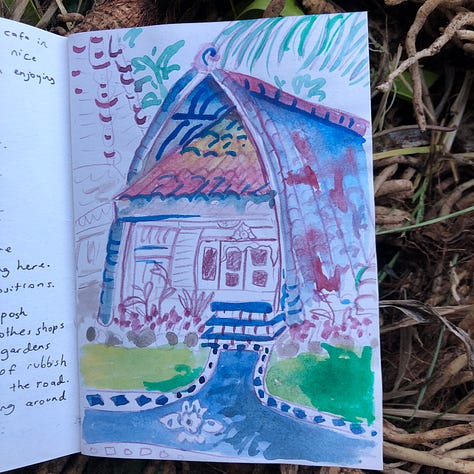 cafe in
nice
enjoying
re
ng here.
positions.
posh
othes shops
gardens
of rubbish
the road.
ng around